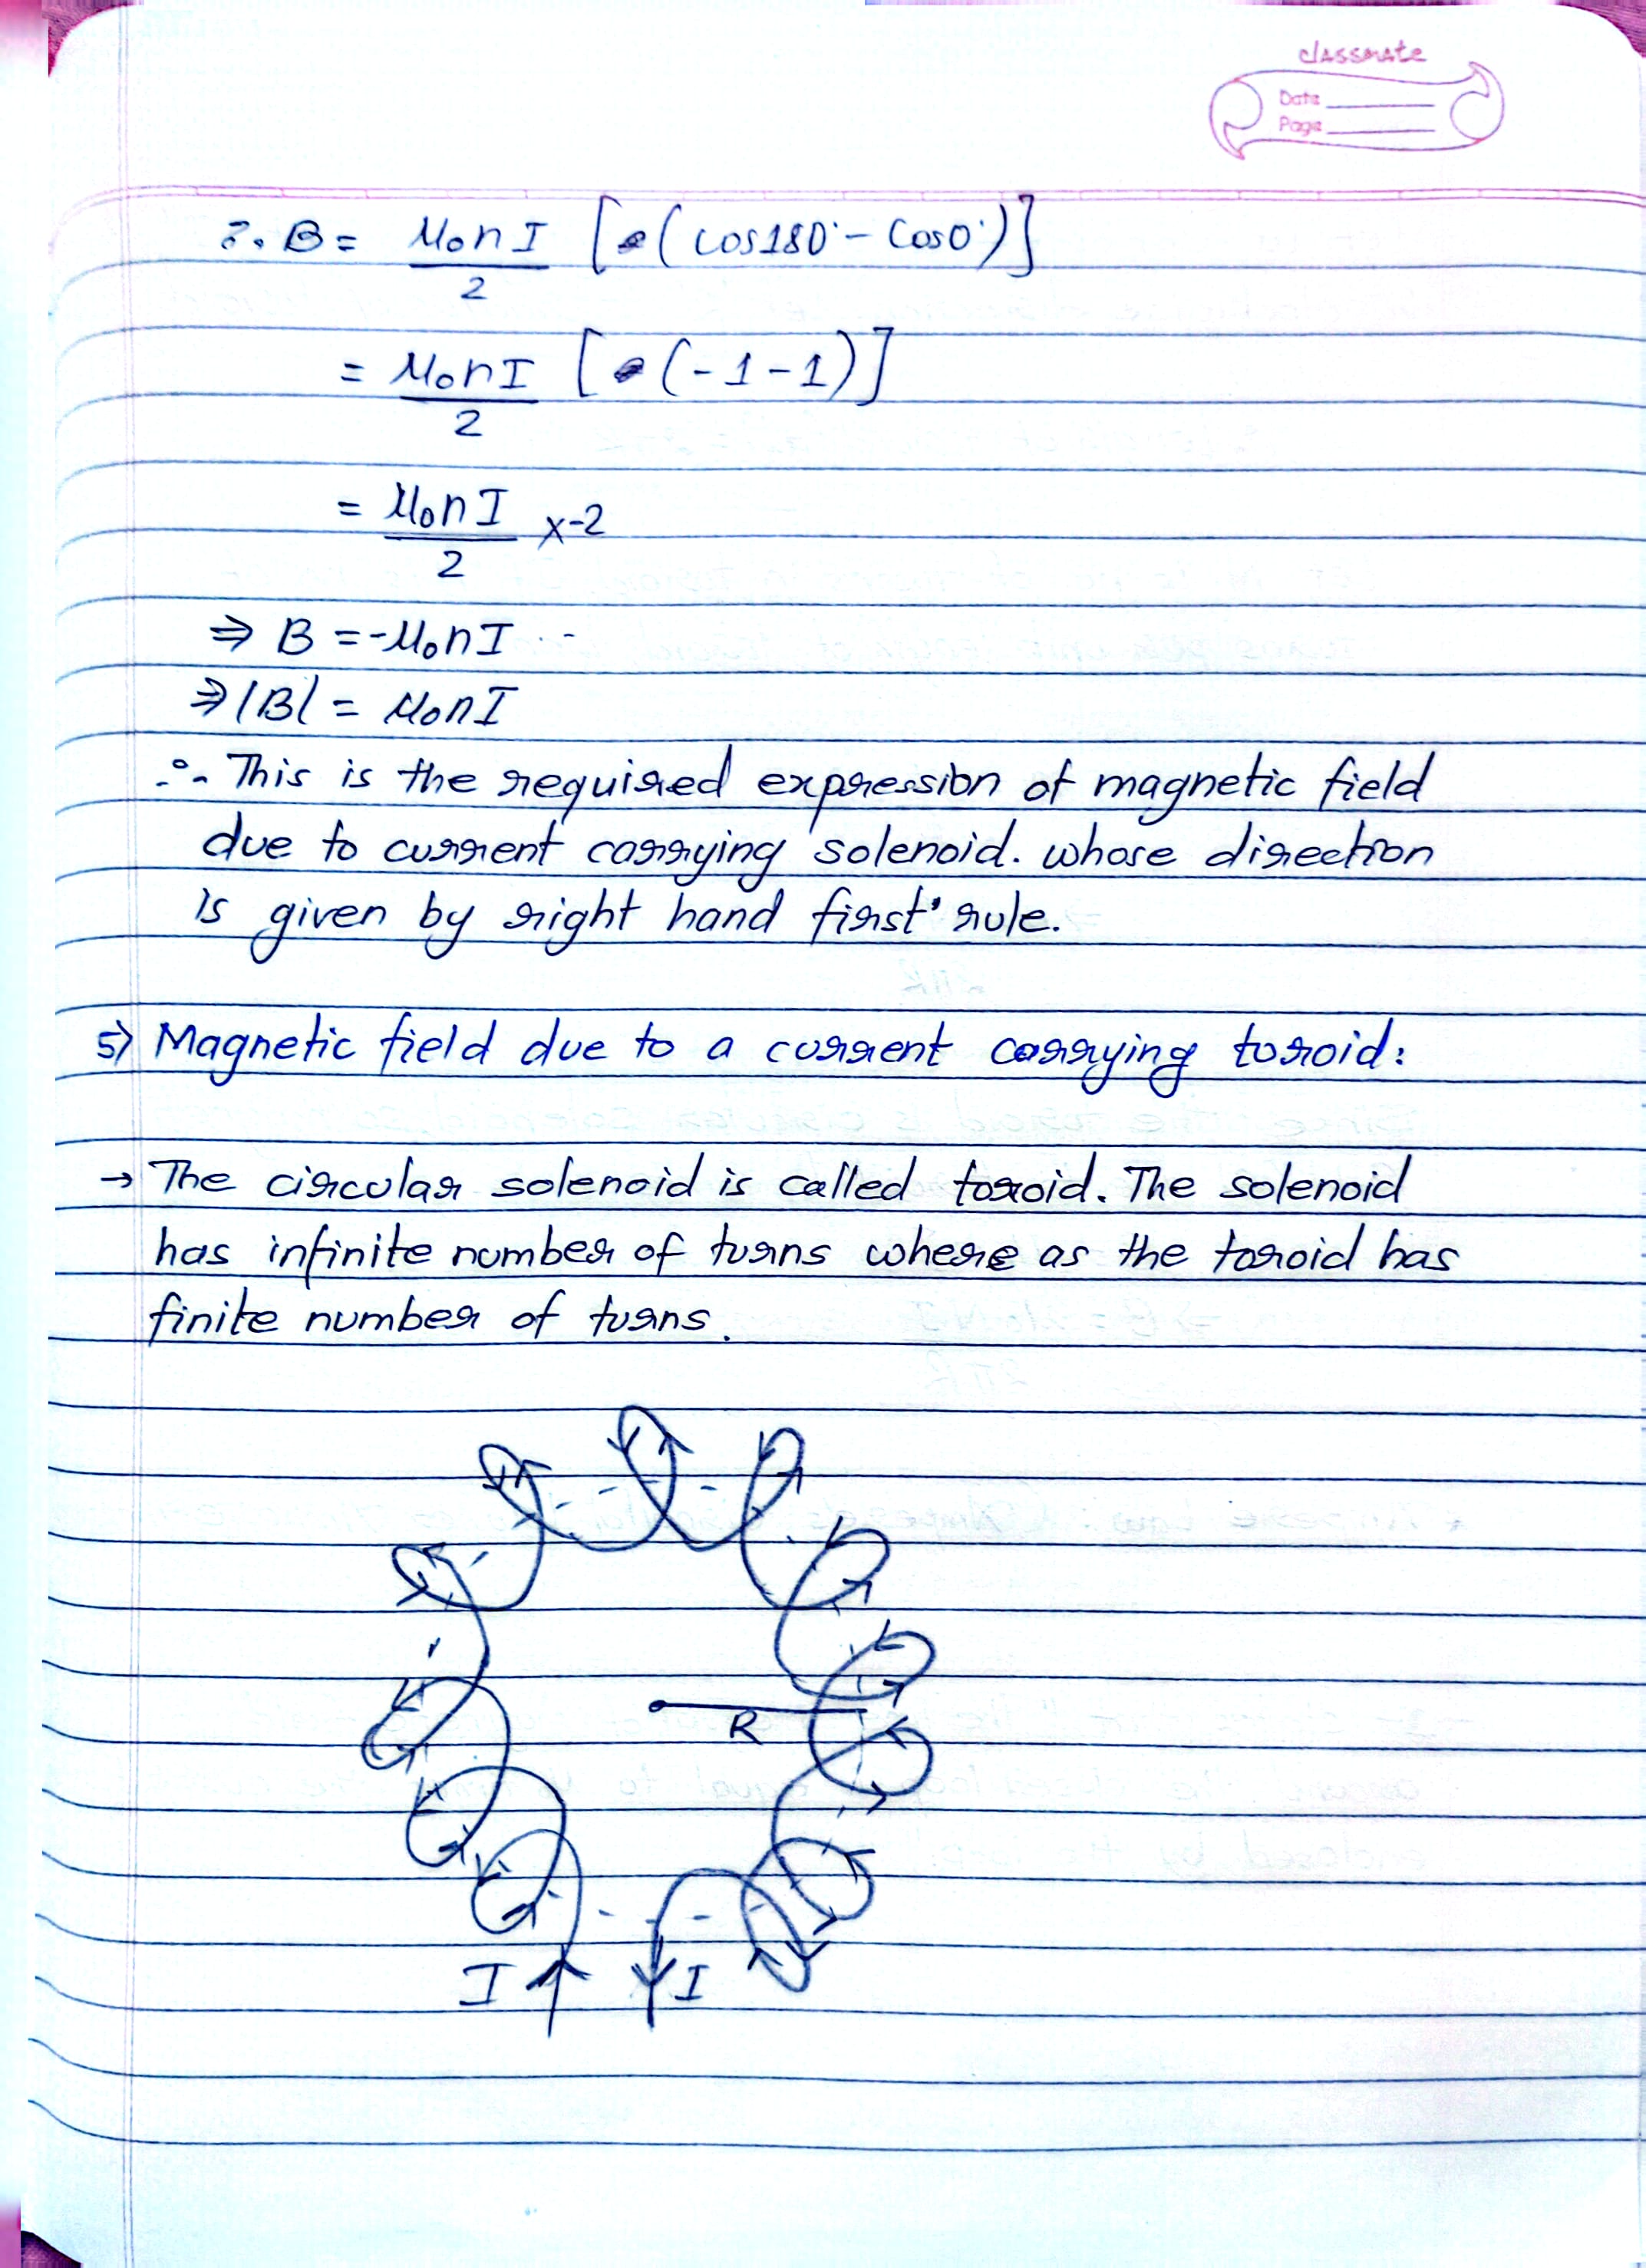 classmate
Date
Page
∴ B = μ₀nI/2 [(cos180° - cos0°)]
= μ₀nI/2 [(-1-1)]
= μ₀nI/2 x-2
⇒ B = -μ₀nI
⇒ |B| = μ₀nI
∴ This is the required expression of magnetic field
due to current carrying solenoid. whose direction
is given by right hand first rule.
5) Magnetic field due to a current carrying toroid:
→ The circular solenoid is called toroid. The solenoid
has infinite number of turns where as the toroid has
finite number of turns.
R
I I